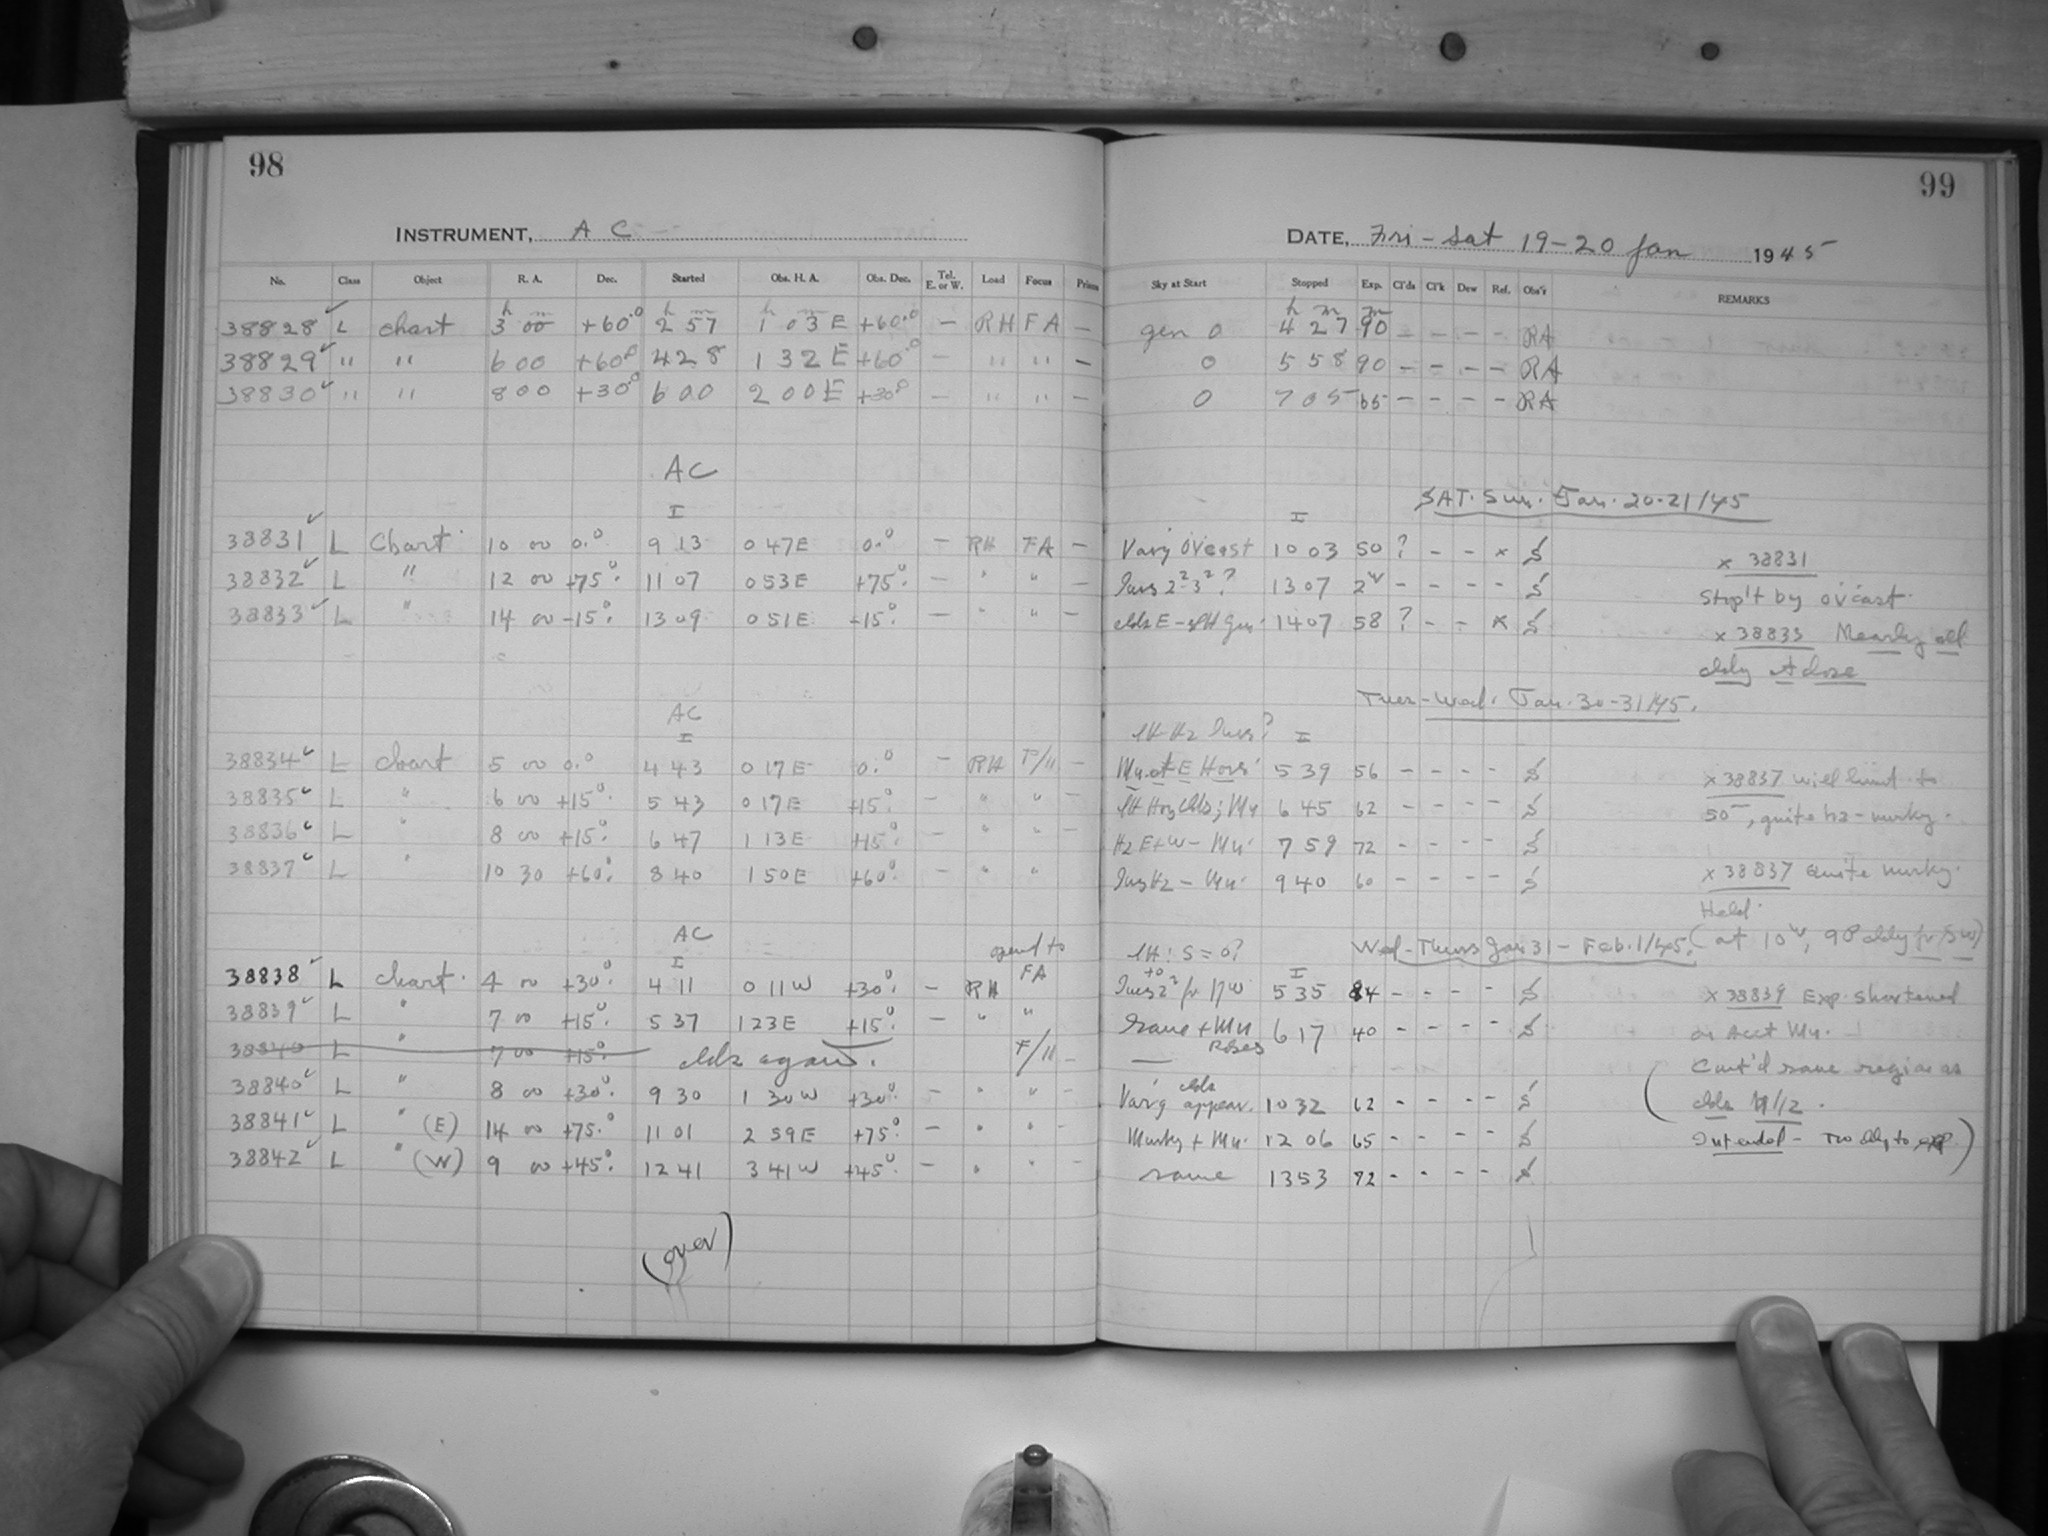 98
99
INSTRUMENT, A C
DATE, Fri - Sat 19-20 Jan 1945
No. Class Object R. A. Dec. Started Obs. H. A. Obs. Dec. Tel. E. or W. Load Focus Prism Sky at Start Stopped Exp. Cl'ds Cl'k Dew Ref. Obs'r REMARKS
38828 ✓ L chart 3h 00m +60.°0 2h 57m 1h 03m E +60.°0 – RH FA – gen 0 4h 27m 90m – – – – RA
38829 ✓ " " 6 00 +60.°0 4 28 1 32 E +60.°0 – " " – 0 5 58 90 – – – – RA
38830 ✓ " " 8 00 +30.°0 6 00 2 00 E +30.°0 – " " – 0 7 05 65 – – – – RA
AC
SAT. Sun. Jan. 20-21/45
I I
38831 ✓ L Chart 10 00 0.°0 9 13 0 47E 0.°0 – RH FA – Var'g Ov'cast 10 03 50 ? – – x S
x 38831
38832 ✓ L " 12 00 +75.°0 11 07 0 53E +75.°0 – " " – 2²-3²? 13 07 2 – – – – S
Stop't by ov'cast.
38833 ✓ L " 14 00 -15.°0 13 09 0 51E -15.°0 – " " – clds E - 14 07 58 ? – – x S
x 38833 Nearly all
cldy at close
Tues-Wed. Jan. 30-31/45.
AC
I I
38834 ✓ L chart 5 00 0.°0 4 43 0 17E 0.°0 – RH F/11 – Mn. at E Hors 5 39 56 – – – – S
x 38837 will limit to
38835 ✓ L " 6 00 +15.°0 5 43 0 17E +15.°0 – " " – Clds; Mn 6 45 62 – – – – S
50, quite hz-murky.
38836 ✓ L " 8 00 +15.°0 6 47 1 13E +15.°0 – " " – Hz E+W – Mn. 7 59 72 – – – – S
38837 ✓ L " 10 30 +60.°0 8 40 1 50E +60.°0 – " " Hz – Mn. 9 40 60 – – – – S
x 38837 Quite murky.
Held.
(at 10, 98 cldy fr SW)
AC S = 0? Wed-Thurs Jan 31 – Feb. 1/45.
I I
38838 ✓ L chart. 4 00 +30.°0 4 11 0 11W +30.°0 – RH FA 5 35 84 – – – – S
x 38839 Exp. shortened
38839 ✓ L " 7 00 +15.°0 5 37 1 23E +15.°0 – " " Same + Mn 6 17 40 – – – – S
on acct Mn.
38840 L " 7 00 +15.°0 clds again. F/11 – —
Cont'd same region as
38840 ✓ L " 8 00 +30.°0 9 30 1 30W +30.°0 – " " – Var'g clds appear. 10 32 62 – – – – S
38841 ✓ L " (E) 14 00 +75.°0 11 01 2 59E +75.°0 – " " – Murky + Mn. 12 06 65 – – – – S
Intended – Too cldy to exp.)
38842 ✓ L " (W) 9 00 +45.°0 12 41 3 41W +45.°0 – " " – same 13 53 72 – – – – S
(over)